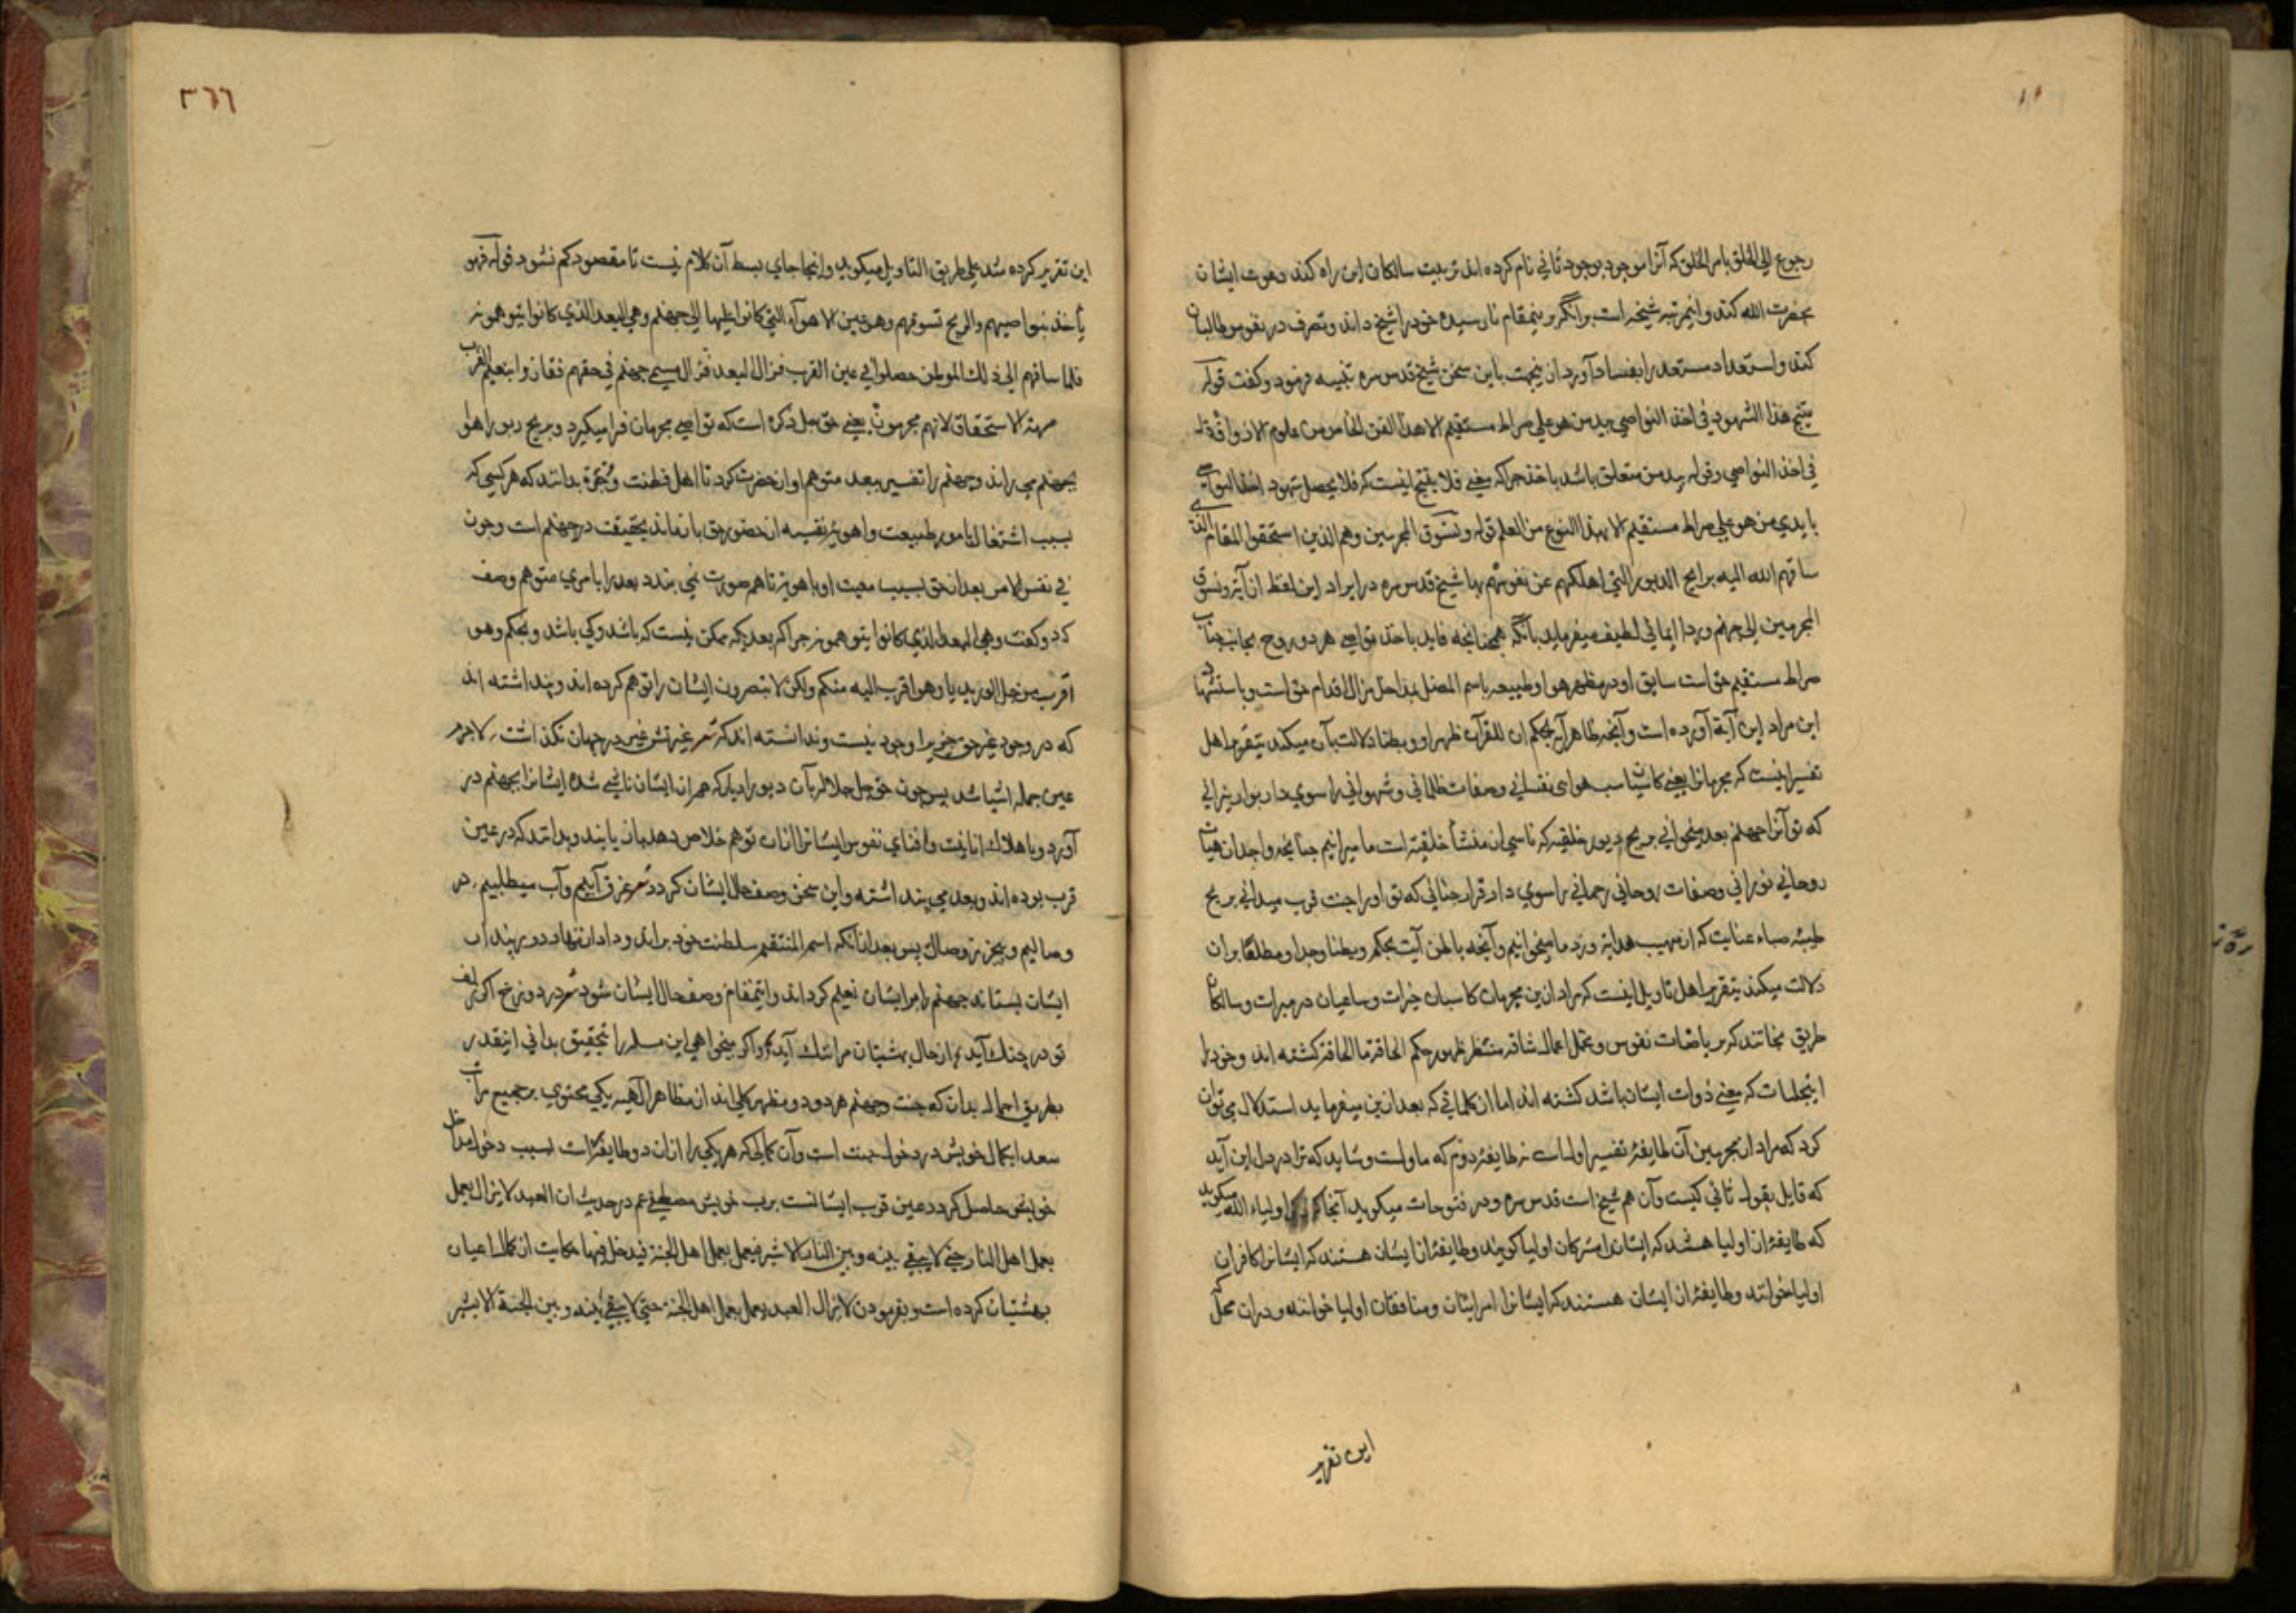 رجوع الی الخلق بامر الخلق که آنرا موجود بوجود ثانی نام کرده اند تربیت سالکان این راه کند دعوت ایشان
بحضرت الله کند و اینمرتبه شیخیه است و اگر بدینمقام نارسیده خود را شیخ داند و تصرف در نفوس طالبان
کند و استعداد مستعد را بفساد آورد ازینجهت باین سخن شیخ قدس سره تنبیه فرمود و کفت قوله
ینتج هذا الشهود فی اخذ النواصی بید من هو علی صراط مستقیم الا هذا الفن الخاص من علوم الاذواق قوله
فی اخذ النواصی وقوله بید من متعلق باشد باخذ جراکه معنی فلا ینتج اینست که فلا یحصل شهود اخذ النواصی
بایدی من هو علی صراط مستقیم الا بهذا النوع من العلم قوله ونسوق المجرمین وهم الذین استحقوا المقام الذی
ساقهم الله الیه بریح الدبور التی اهلکهم عن نفوسهم بها شیخ قدس سره در ایراد این لفظ از آیة ونسوق
المجرمین الی جهنم وردا ایمائی لطیف میفرماید بآنکه همچنانچه قاید باخذ نواصی هر دو روح بجانب جناب
صراط مستقیم حق است سایق او در مظهر هوا و طبیعه باسم المضل بمداحل مزال اقدام حق است و باستشهاد
این مراد این آیة آورده است و آنچه ظاهر آیه بحکم ان للقرآن ظهرا و بطنا دلالت بآن میکند بتقریر اهل
تفسیر اینست که مجرمانرا یعنی کاسبان اسب هوای نفسانی وصفات ظلمانی و شهوانی را سوی دار بوار نیرانی
که تو آنرا جهنم بعد میخوانی بریح دبور خلقیه که ناسی از منشأ خلقیه است ما میرانیم جنانچه واجدان هیات
روحانی نورانی وصفات روحانی رحمانی را سوی دار قرار جنانی که تو او را جنت قرب میدانی بریح
طیبه صباء عنایت که از مهب هدایة وزد ما میخوانیم و آنچه باطن آیت بحکم وبطنا وحدا ومطلعا بران
دلالت میکند بتقریر اهل تاویل اینست که مراد ازین مجرمان کاسبان خیرات وساعیان در مبرات وسالکان
طریق نجاتند که بریاضات نفوس و تحمل اعمال شاقه منتظر ظهور حکم الحاقة ما الحاقة کشته اند و خود را
که معنی ذوات ایشان باشد کشته اند اما از کلماتی که بعد ازین میفرماید استدلال می توان
کرد که مراد از مجرمین آن طایفهٔ تفسیر اول است نه طایفهٔ دوم که ماولست و شاید که ترا در دل این آید
که قایل بقول ثانی کیست وآن هم شیخ است قدس سره و در فتوحات میکوید آنجا که اولیاء الله میکوید
که طایفهٔ از اولیا هستند که ایشانرا مشرکان اولیا کویند و طایفهٔ از ایشان هستند که ایشانرا کافران
اولیا خوانند و طایفهٔ از ایشان هستند که ایشانرا مرایان و منافقان اولیا خوانند و در ان محل که
این تقریر
٣٦٦
این تقریر کرده شد علی طریق التاویل میکوید و اینجا جای بسط آن کلام نیست تا مقصود کم نشود قوله فهو
یأخذ بنواصیهم والریح تسوقهم وهو عین الاهواء التی کانوا علیها الی جهنم وهی البعد الذی کانوا یتوهمونه
فلما ساقهم الی ذلک الموطن حصلوا فی عین القرب فزال البعد فزال مسمی جهنم فی حقهم ففازوا بنعیم القرب
من جهة الاستحقاق لانهم مجرمون یعنی حق جل ذکره است که نواصی مجرمان فرا میکیرد و بریح دبور اهوا
بجهنم می راند و جهنم را تفسیر ببعد متوهم او از حضرت کرد تا اهل فطنت و خبرة بدانند که هر کسی که
بسبب اشتغال بامور طبیعت واهویه نفسیه از حضور حق باز ماند بحقیقت در جهنم است و جون
فی نفس الامر بعد از حق بسبب معیت او با هویت ما هم صورت نمی بندد بعد را بامری متوهم وصف
کرد و کفت وهی البعد الذی کانوا یتوهمونه جراکه بعدیکه ممکن نیست که باشد و کی باشد و بحکم وهو
اقرب من حبل الورید یا وهو اقرب الیه منکم ولکن لا تبصرون ایشان را توهم کرده اند و پنداشته اند
که در وجود غیر حق چیزی را وجود نیست و ندانسته اند که شعر غیرتش غیر در جهان نکذاشت ٫ لاجرم
عین جمله اشیا شد پس جون حق جل جلاله بآن دبور ادبار که هم از ایشان ناشی شده ایشانرا بجهنم در
آورد و باهلاک انانیت و افنای نفوس ایشانرا ازان توهم خلاص دهد باز یابند و بدانند که در عین
قرب بوده اند و بعد می پنداشته و این سخن وصف حال ایشان کردد شعر غرق آبیم و آب میطلبیم ٫ در
وصالیم و بیخبر ز وصال پس بعد ازانکه اسم المنتقم سلطنت خود براند و داد از نهاد دور پندار
ایشان بستاند جهنم را بر ایشان نعیم کرداند و اینمقام وصف حال ایشان شود شعر در دوزخ اکر زلف
تو در چنک آید ٫ از حال بهشتیان مرا ننک آید ٫ و اکر میخواهی این مسله را بتحقیق بدانی اینقدر
بطریق اجمال بدان که جنت و جهنم هر دو دو مظهر کلی اند از مظاهر الهیه یکی محتوی بر جمیع مراتب
سعدا بکمال خویش در دخول جنت است و آن کمالی که هر یکی را ازان دو طایفه است بسبب دخول مداخل
خویش حاصل کردد عین قرب ایشانست برب خویش مصطفی عم در حدیث ان العبد لا یزال یعمل
بعمل اهل النار حتی لا یبقی بینه وبین النار الا شبر فیعمل بعمل اهل الجنة فیدخل فیها حکایت از کمال اعیان
بهشتیان کرده است و بفرمودن لا یزال العبد یعمل بعمل اهل الجنة حتی لا یبقی بینه وبین الجنة الا شبر